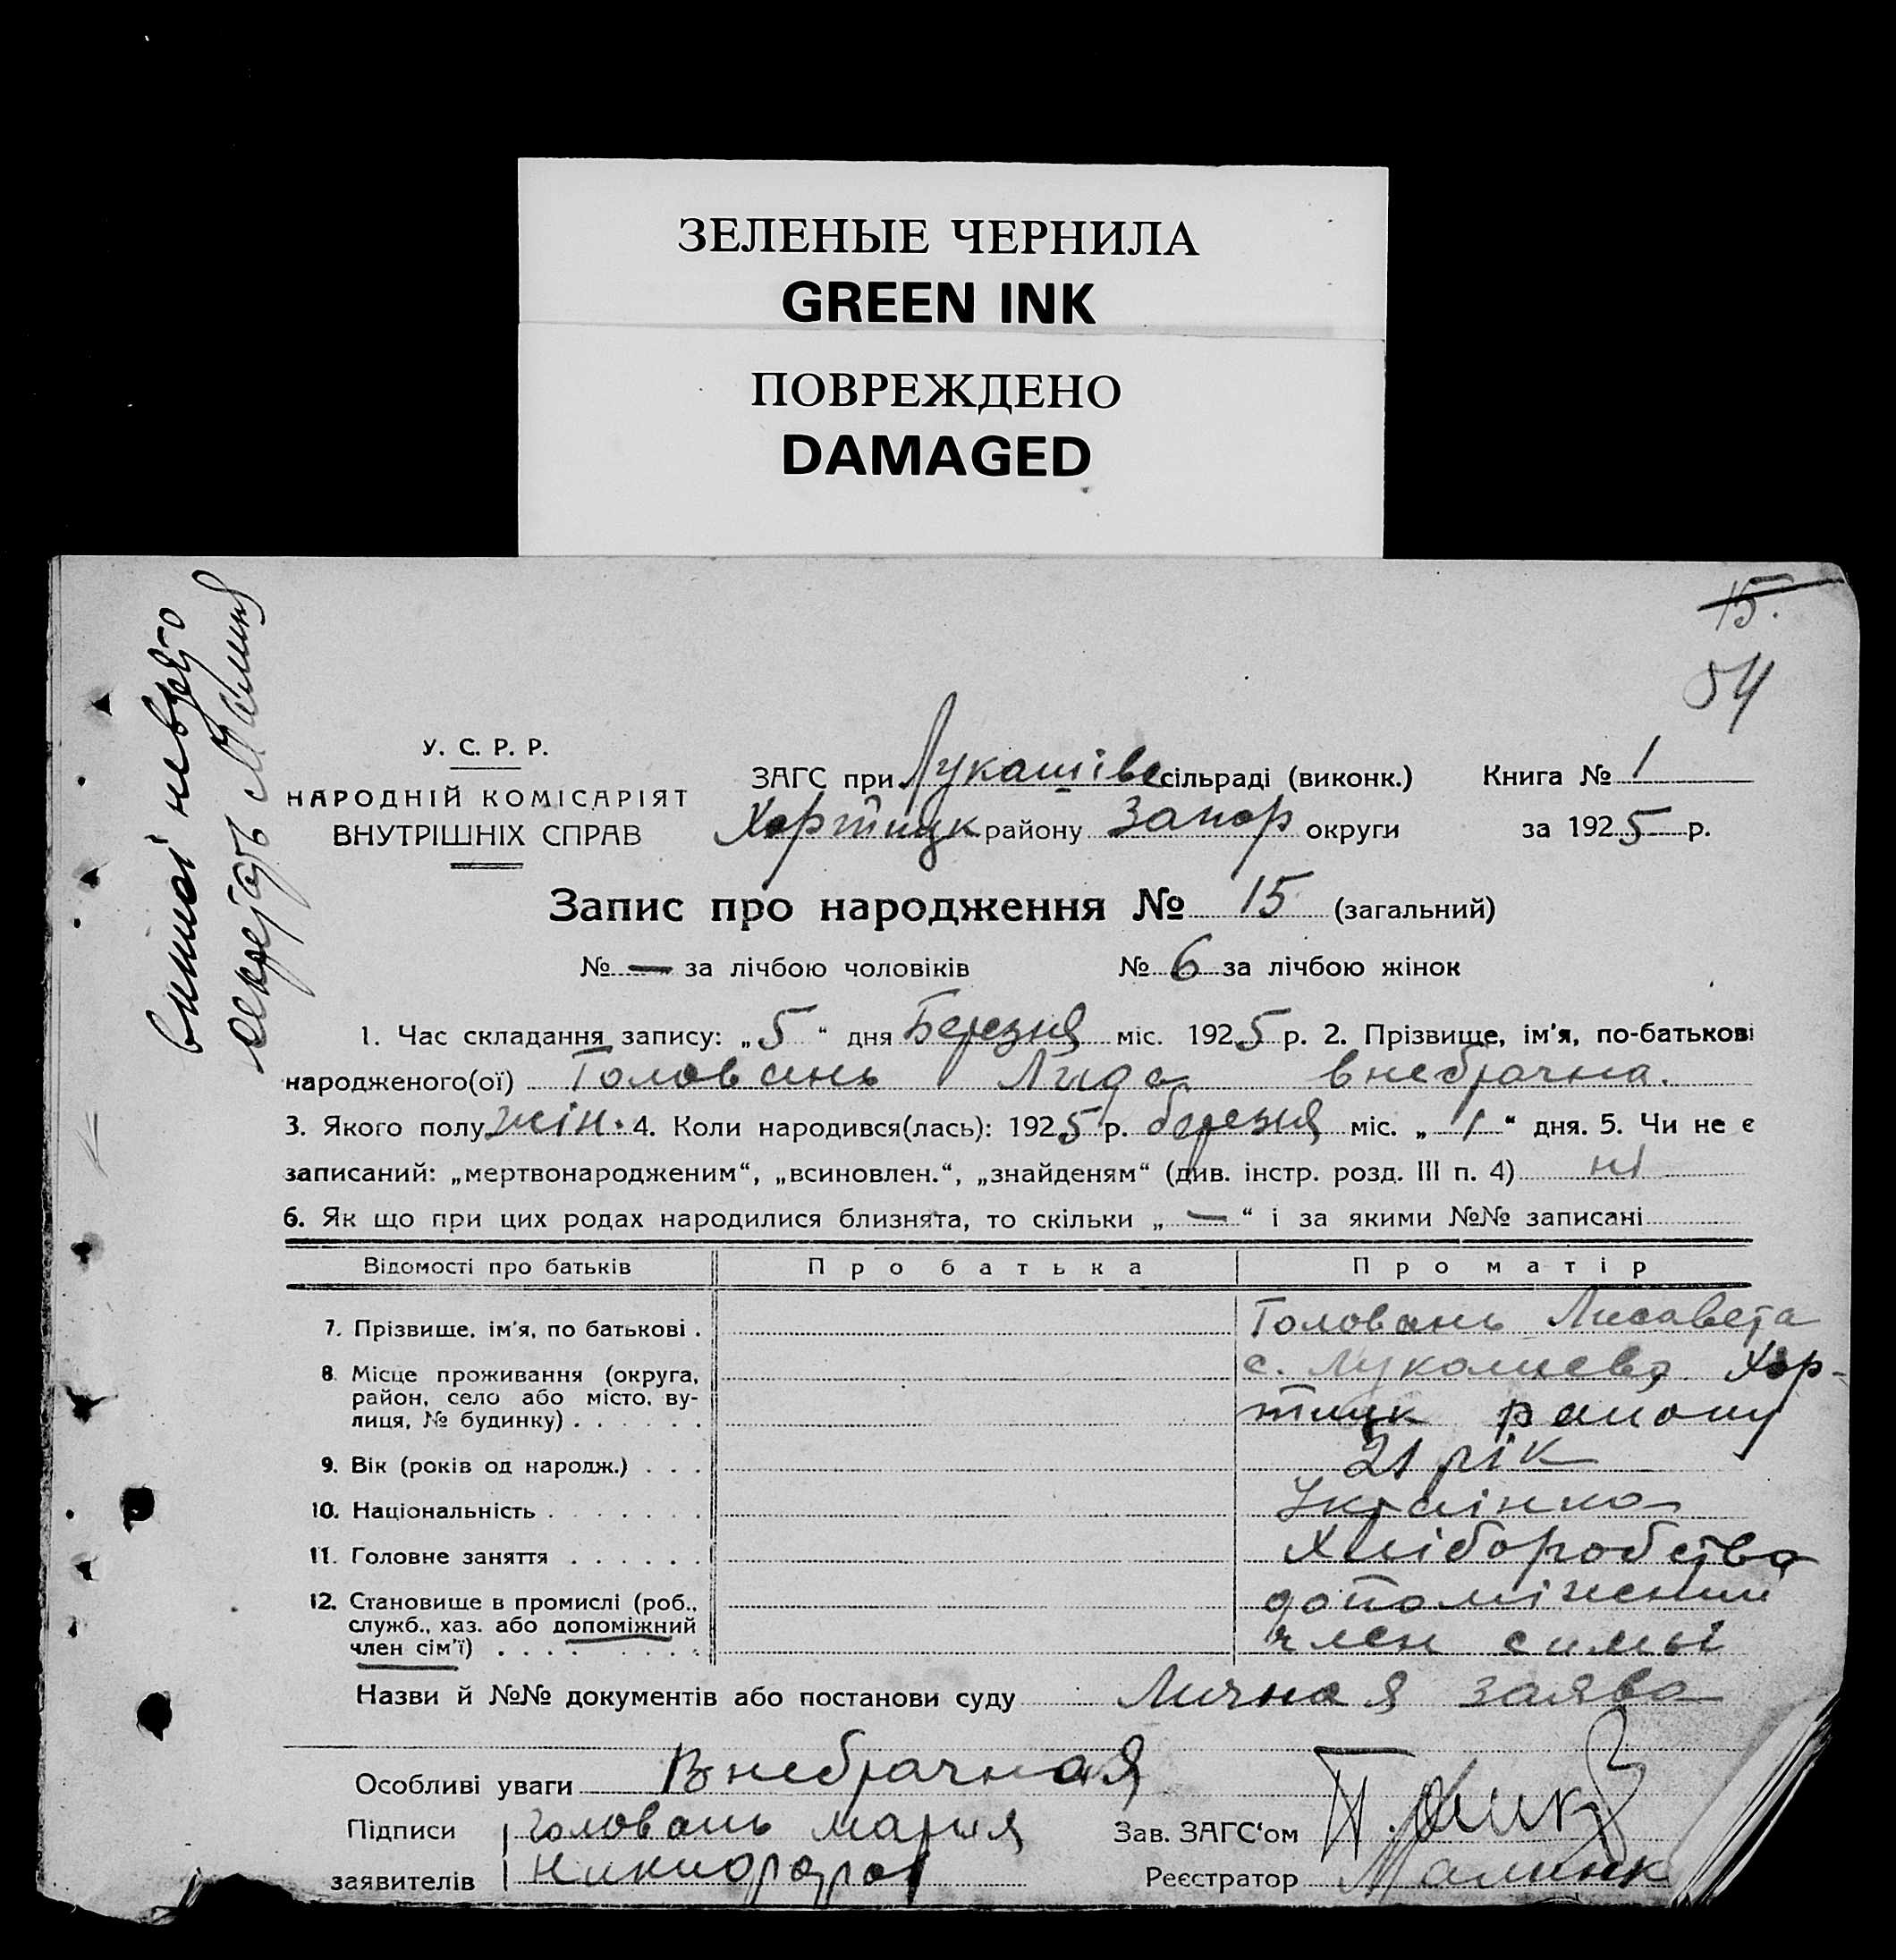 ЗЕЛЕНЫЕ ЧЕРНИЛА
GREEN INK
ПОВРЕЖДЕНО
DAMAGED
15.
54
У. С. Р. Р.
НАРОДНІЙ КОМІСАРІЯТ
ВНУТРІШНІХ СПРАВ
ЗАГС при Лукашівс сільраді (виконк.) Книга № 1
Хортицк району Запор округи за 1925 р.
Запис про народження № 15 (загальний)
№ — за лічбою чоловіків № 6 за лічбою жінок
1. Час складання запису: „5“ дня Березня міс. 1925 р. 2. Прізвище, ім'я, по-батькові
народженого(ої) Головань Лида внебрачна.
3. Якого полу жін. 4. Коли народився(лась): 1925 р. березня міс. „1“ дня. 5. Чи не є
записаний: „мертвонародженим“, „всиновлен.“, „знайденям“ (див. інстр. розд. III п. 4) ні
6. Як що при цих родах народилися близнята, то скільки „—“ і за якими №№ записані
Відомості про батьків Про батька Про матір
7. Прізвище, ім'я, по батькові . Головань Лисавета
8. Місце проживання (округа, с. Лукашево Хор-
район, село або місто, ву-
лиця, № будинку) . . . . . . тицк району
9. Вік (років од народж.) . . . 21 рік
10. Національність . . . . . . . Українка
11. Головне заняття . . . . . . Хліборобство
12. Становище в промислі (роб., допоміжний
служб., хаз. або допоміжний
член сім'ї) . . . . . . . . член симьі
Назви й №№ документів або постанови суду Личная заява
Особливі уваги Внебрачная
Підписи Головань Мария Зав. ЗАГС'ом
заявителів Реєстратор Малинк